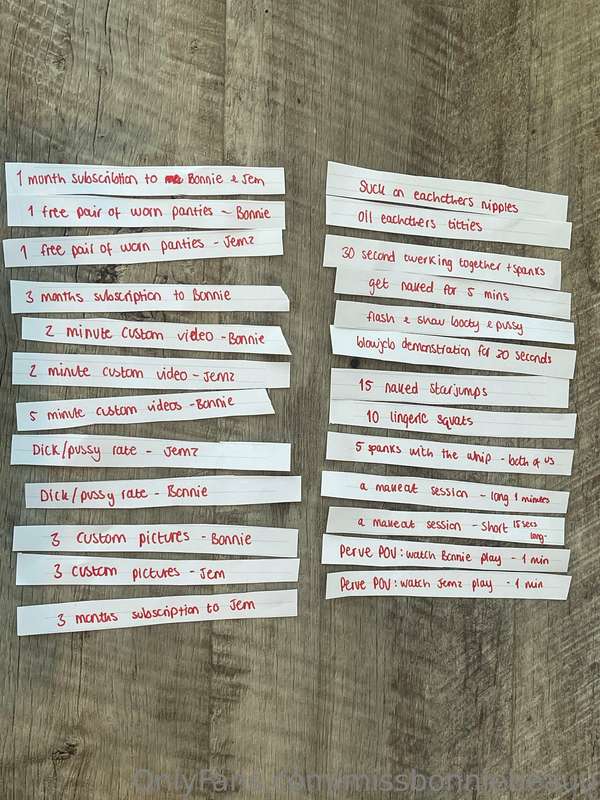 1 month subscribtion to Bonnie & Jem
1 free pair of worn panties - Bonnie
1 free pair of worn panties - Jemz
3 months subscription to Bonnie
2 minute custom video - Bonnie
2 minute custom video - Jemz
5 minute custom videos - Bonnie
Dick/pussy rate - Jemz
Dick/pussy rate - Bonnie
3 custom pictures - Bonnie
3 custom pictures - Jem
3 months subscription to Jem
Suck on eachothers nipples
Oil eachothers titties
30 second twerking together + spanks
get naked for 5 mins
flash & show booty & pussy
blowjob demonstration for 20 seconds
15 naked starjumps
10 lingerie squats
5 spanks with the whip - both of us
a makeout session - long 1 minutes
a makeout session - short 15 secs
long-
Perve POV: watch Bonnie play - 1 min
Perve POV: watch Jemz play - 1 min